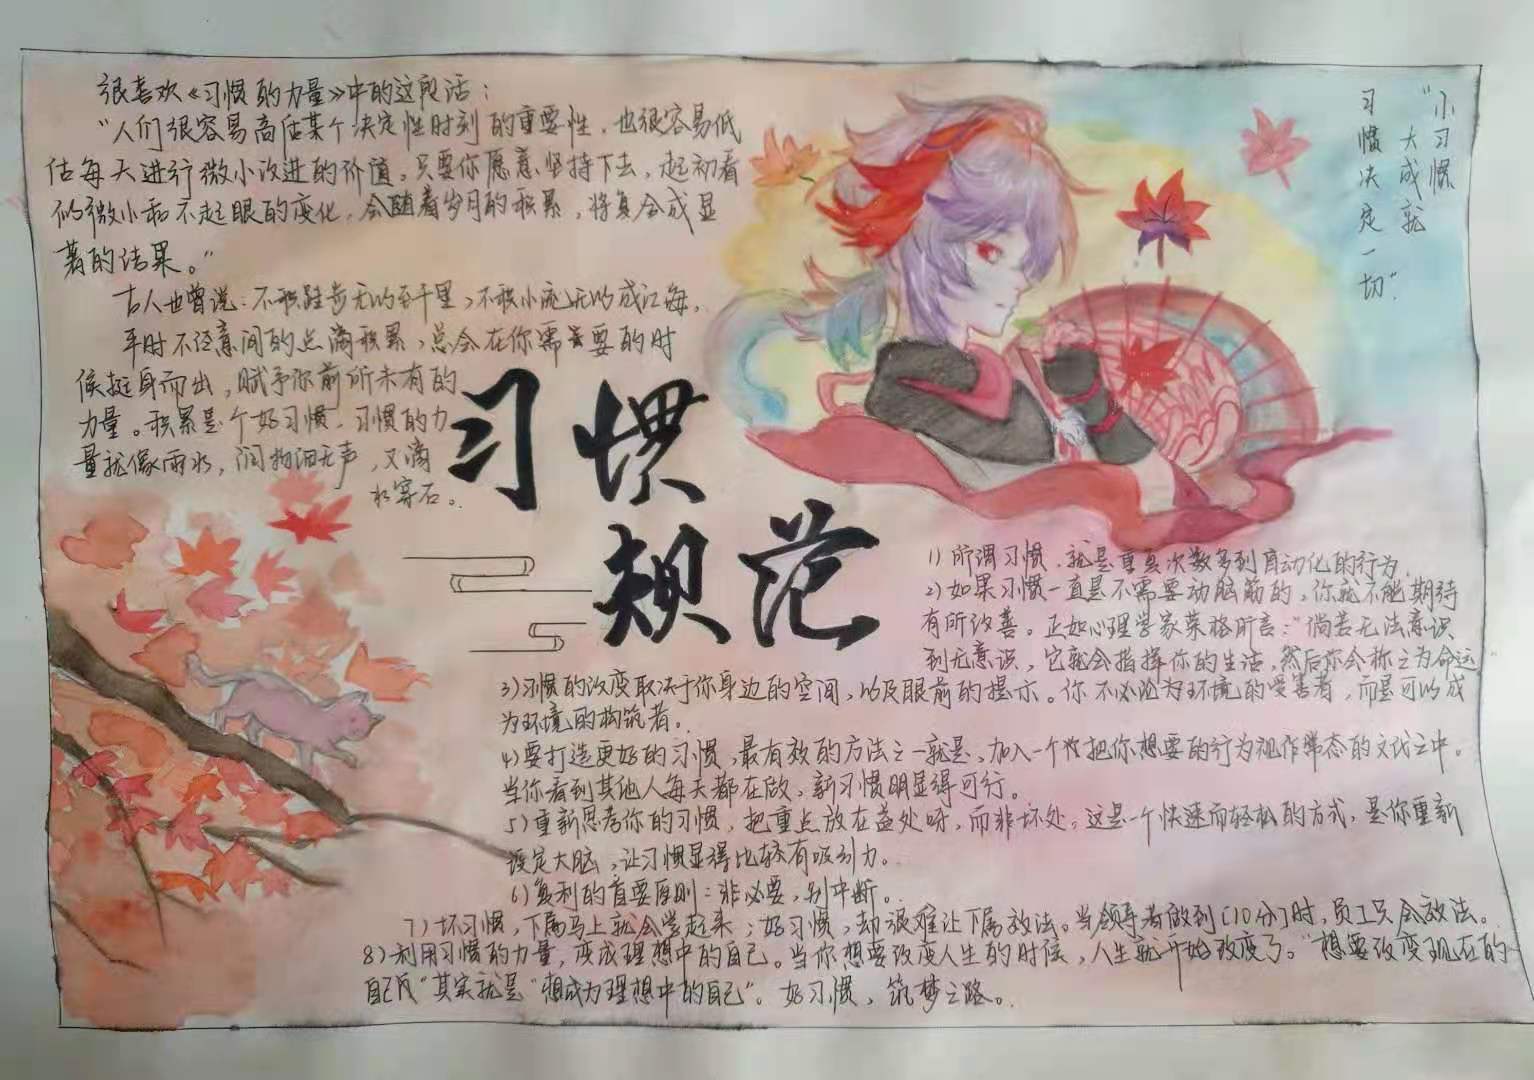 很喜欢《习惯的力量》中的这段话：
"人们很容易高估某个决定性时刻的重要性，也很容易低
估每天进行微小改进的价值。只要你愿意坚持下去，起初看
似微小和不起眼的变化，会随着岁月的积累，将复合成显
著的结果。"
古人也曾说：不积跬步无以至千里，不积小流无以成江海。
平时不经意间的点滴积累，总会在你需要的时
候挺身而出，赋予你前所未有的
力量。积累是个好习惯，习惯的力
量就像雨水，润物细无声，又滴
水穿石。
"小习惯
大成就
习惯决定一切"
习惯
规范
1）所谓习惯，就是重复次数多到自动化的行为。
2）如果习惯一直是不需要动脑筋的，你就不能期待
有所改善。正如心理学家荣格所言："倘若无法意识
到无意识，它就会指挥你的生活，然后你会称之为命运"
3）习惯的改变取决于你身边的空间，以及眼前的提示。你不必沦为环境的受害者，而是可以成
为环境的构筑者。
4）要打造更好的习惯，最有效的方法之一就是，加入一个把你想要的行为视作常态的文化之中。
当你看到其他人每天都在做，新习惯明显得可行。
5）重新思考你的习惯，把重点放在益处呀，而非坏处。这是一个快速而轻松的方式，是你重新
设定大脑，让习惯显得比较有吸引力。
6）复利的首要原则：非必要，别中断。
7）坏习惯，下属马上就会学起来；好习惯，却很难让下属效法。当领导者做到〔10分〕时，员工只会效法。
8）利用习惯的力量，变成理想中的自己。当你想要改变人生的时候，人生就开始改变了。"想要改变现在的
自己"其实就是"想成为理想中的自己"。好习惯，筑梦之路。